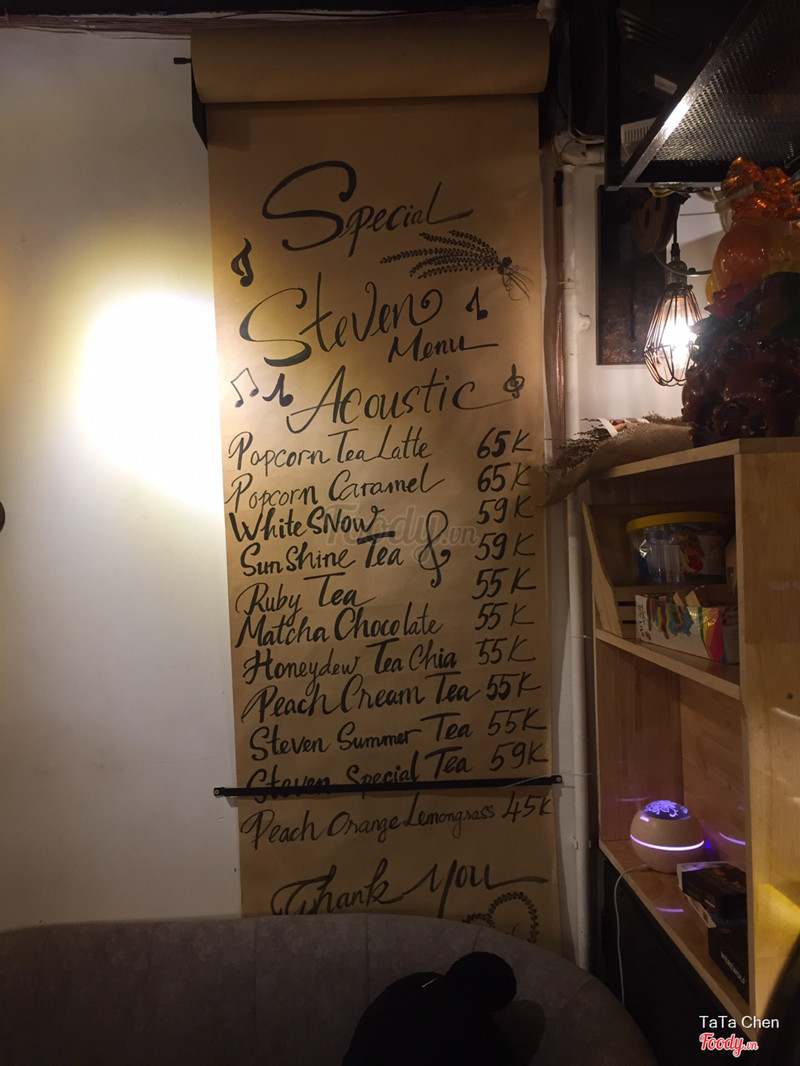 Special
Steven
Menu
Acoustic
Popcorn Tea Latte 65K
Popcorn Caramel 65K
White SNow 59K
Sun Shine Tea 59K
Ruby Tea 55K
Matcha Chocolate 55K
Honeydew Tea Chia 55K
Peach Cream Tea 55K
Steven Summer Tea 55K
Steven Special Tea 59K
Peach Orange Lemongrass 45K
Thank You
Foody.vn
TaTa Chen
Foody.vn